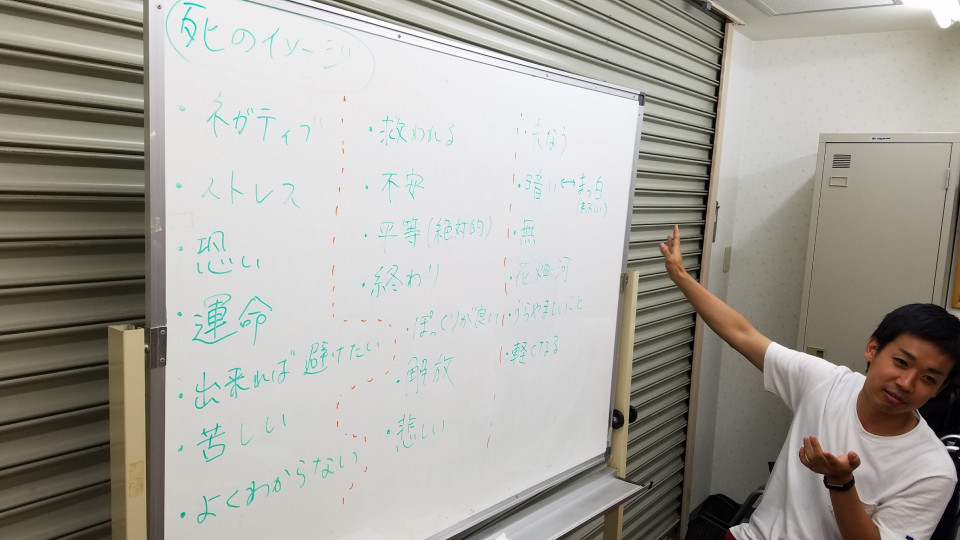 死のイメージ
・ネガティブ
・ストレス
・恐い
・運命
・出来れば避けたい
・苦しい
・よくわからない
・救われる
・不安
・平等(絶対的)
・終わり
・ぽっくりが良い
・解放
・悲しい
・失なう
・暗い↔真っ白
・無
・花畑・河
・うらやましいこと
・軽くなる